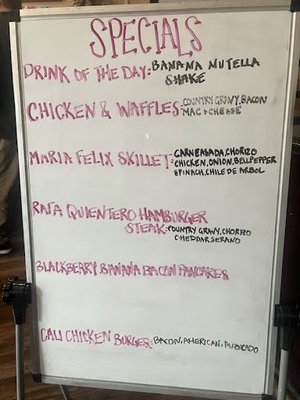 SPECIALS
DRINK OF THE DAY: BANANA NUTELLA
SHAKE
CHICKEN & WAFFLES: COUNTRY GRAVY, BACON
MAC & CHEESE
MARIA FELIX SKILLET: CARNE ASADA, CHORIZO
CHICKEN, ONION, BELL PEPPER
SPINACH, CHILE DE ARBOL
RAFA QUIENTERO HAMBURGER
STEAK: COUNTRY GRAVY, CHORIZO
CHEDDAR, SERANO
BLACKBERRY BANANA BACON PANCAKES
CALI CHICKEN BURGER: BACON, AMERICAN, AVOCADO